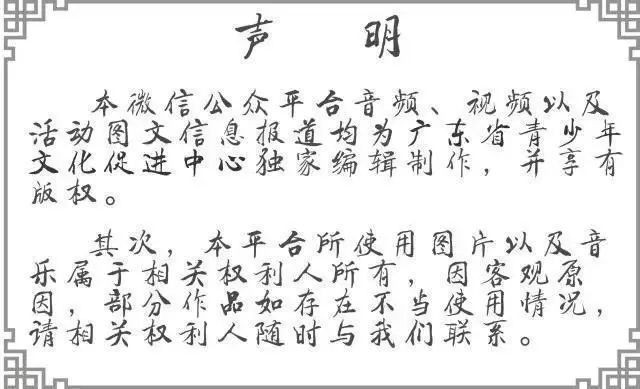 声 明
本微信公众平台音频、视频以及
活动图文信息报道均为广东省青少年
文化促进中心独家编辑制作，并享有
版权。
其次，本平台所使用图片以及音
乐属于相关权利人所有，因客观原
因，部分作品如存在不当使用情况，
请相关权利人随时与我们联系。